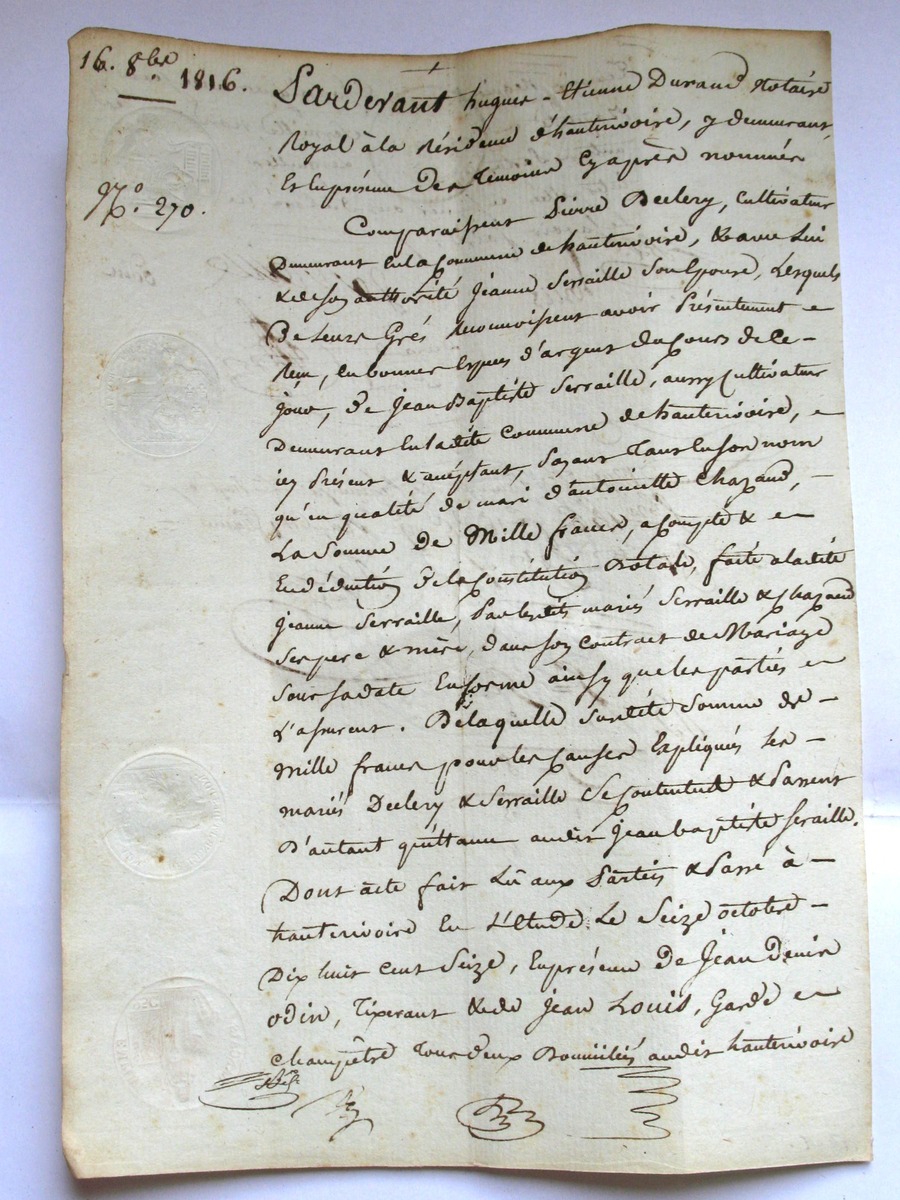 16. 8bre
1816.
No. 270.
Pardevant hugues - Etienne Durand Notaire
Royal à la Résidence d'hauterivoire, y demeurant,
Et En présence des Temoins Cy après nommés
Comparaissent Pierre Declery, Cultivateur
Demeurant En la Commune de hauterivoire, & avec Lui
& de son authorité Jeanne Serraille Son Epouse, Lesquels
De Leurs Grés Reconnoissent avoir Présentement
Reçu, En bonnes Espèces d'argent du Cours de Ce
jour, de Jean Baptiste Serraille, aussy Cultivateur
Demeurant En ladite Commune de hauterivoire,
icy Présent & acceptant, Payant Tant En son nom
qu'en qualité de mari d'antoinette Chazaud,
La Somme de Mille francs, acompte &
En déduction de la Constitution dotale, faite a ladite
Jeanne Serraille, Par lesdits mariés Serraille & Chazaud
Ses pere & mère, dans son Contract de Mariage
Sous Sa date En forme ainsy que les parties
L'assurent. De laquelle Susdite Somme de
Mille francs pour les Causes Expliqués les
mariés Declery & Serraille Se Contentent & Passent
D'autant quittance audit Jean baptiste Seraille.
Dont acte fait Lû aux Parties & Passé à
hauterivoire En L'Etude Le Seize octobre
Dix huit cent Seize, En présence de Jean Denis
odin, Tixerant & de Jean Louis, Garde
Champêtre Tous deux Domiciliés audit hauterivoire